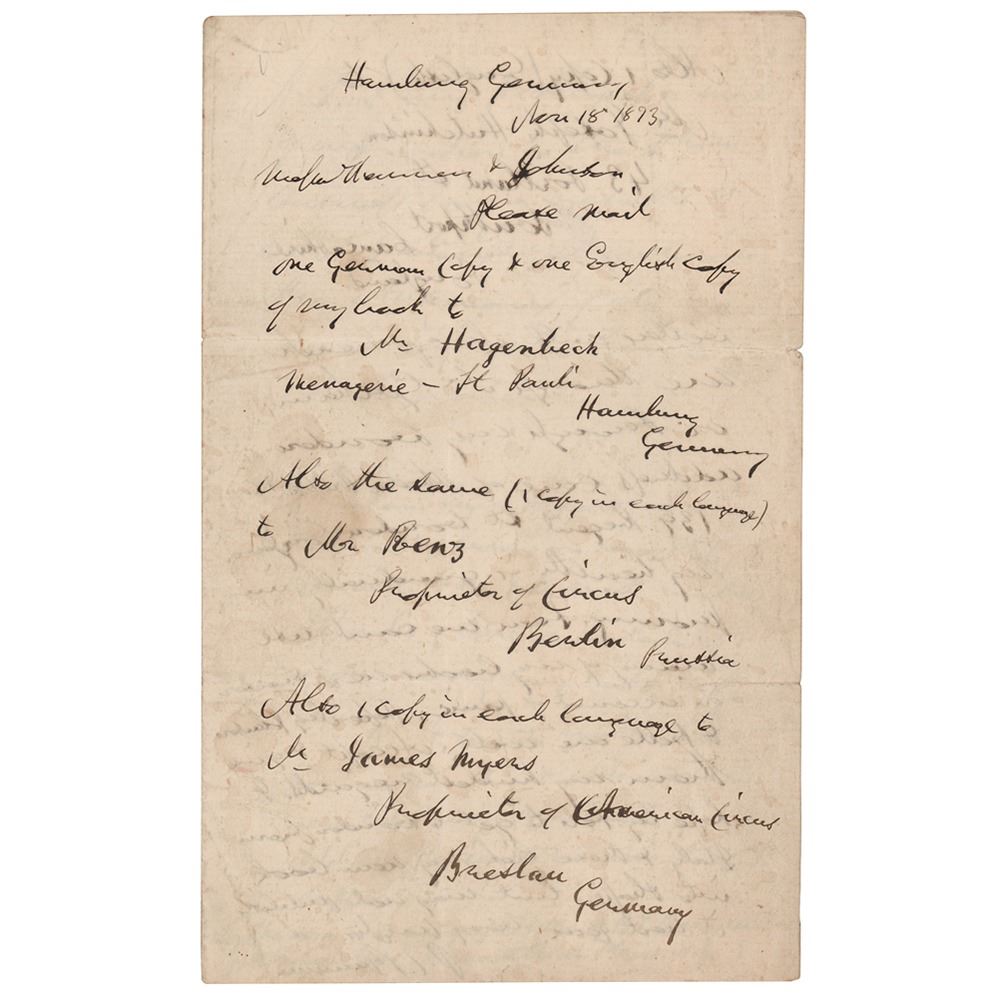 Hamburg Germany
Nov 18 1873
& Johnson
Please mail
one German Copy & one English Copy
of my book to
Mr Hagenbeck
Menagerie – St Pauli
Hamburg
Germany
Also the same (1 copy in each language)
to Mr Renz
Proprietor of Circus
Berlin Prussia
Also 1 copy in each language to
Mr James Myers
Proprietor of American Circus
Breslau
Germany